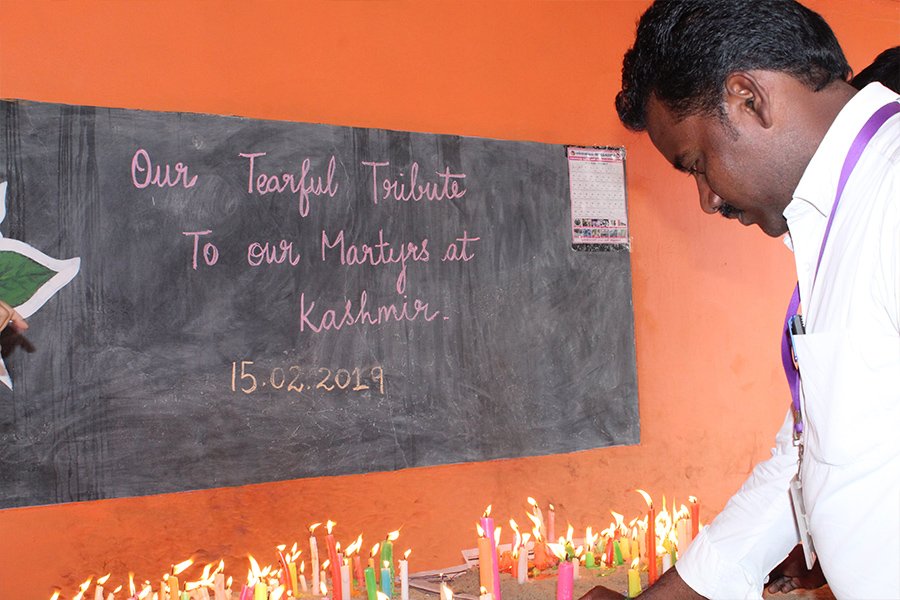 Our Tearful Tribute
To our Martyrs at
Kashmir.
15.02.2019